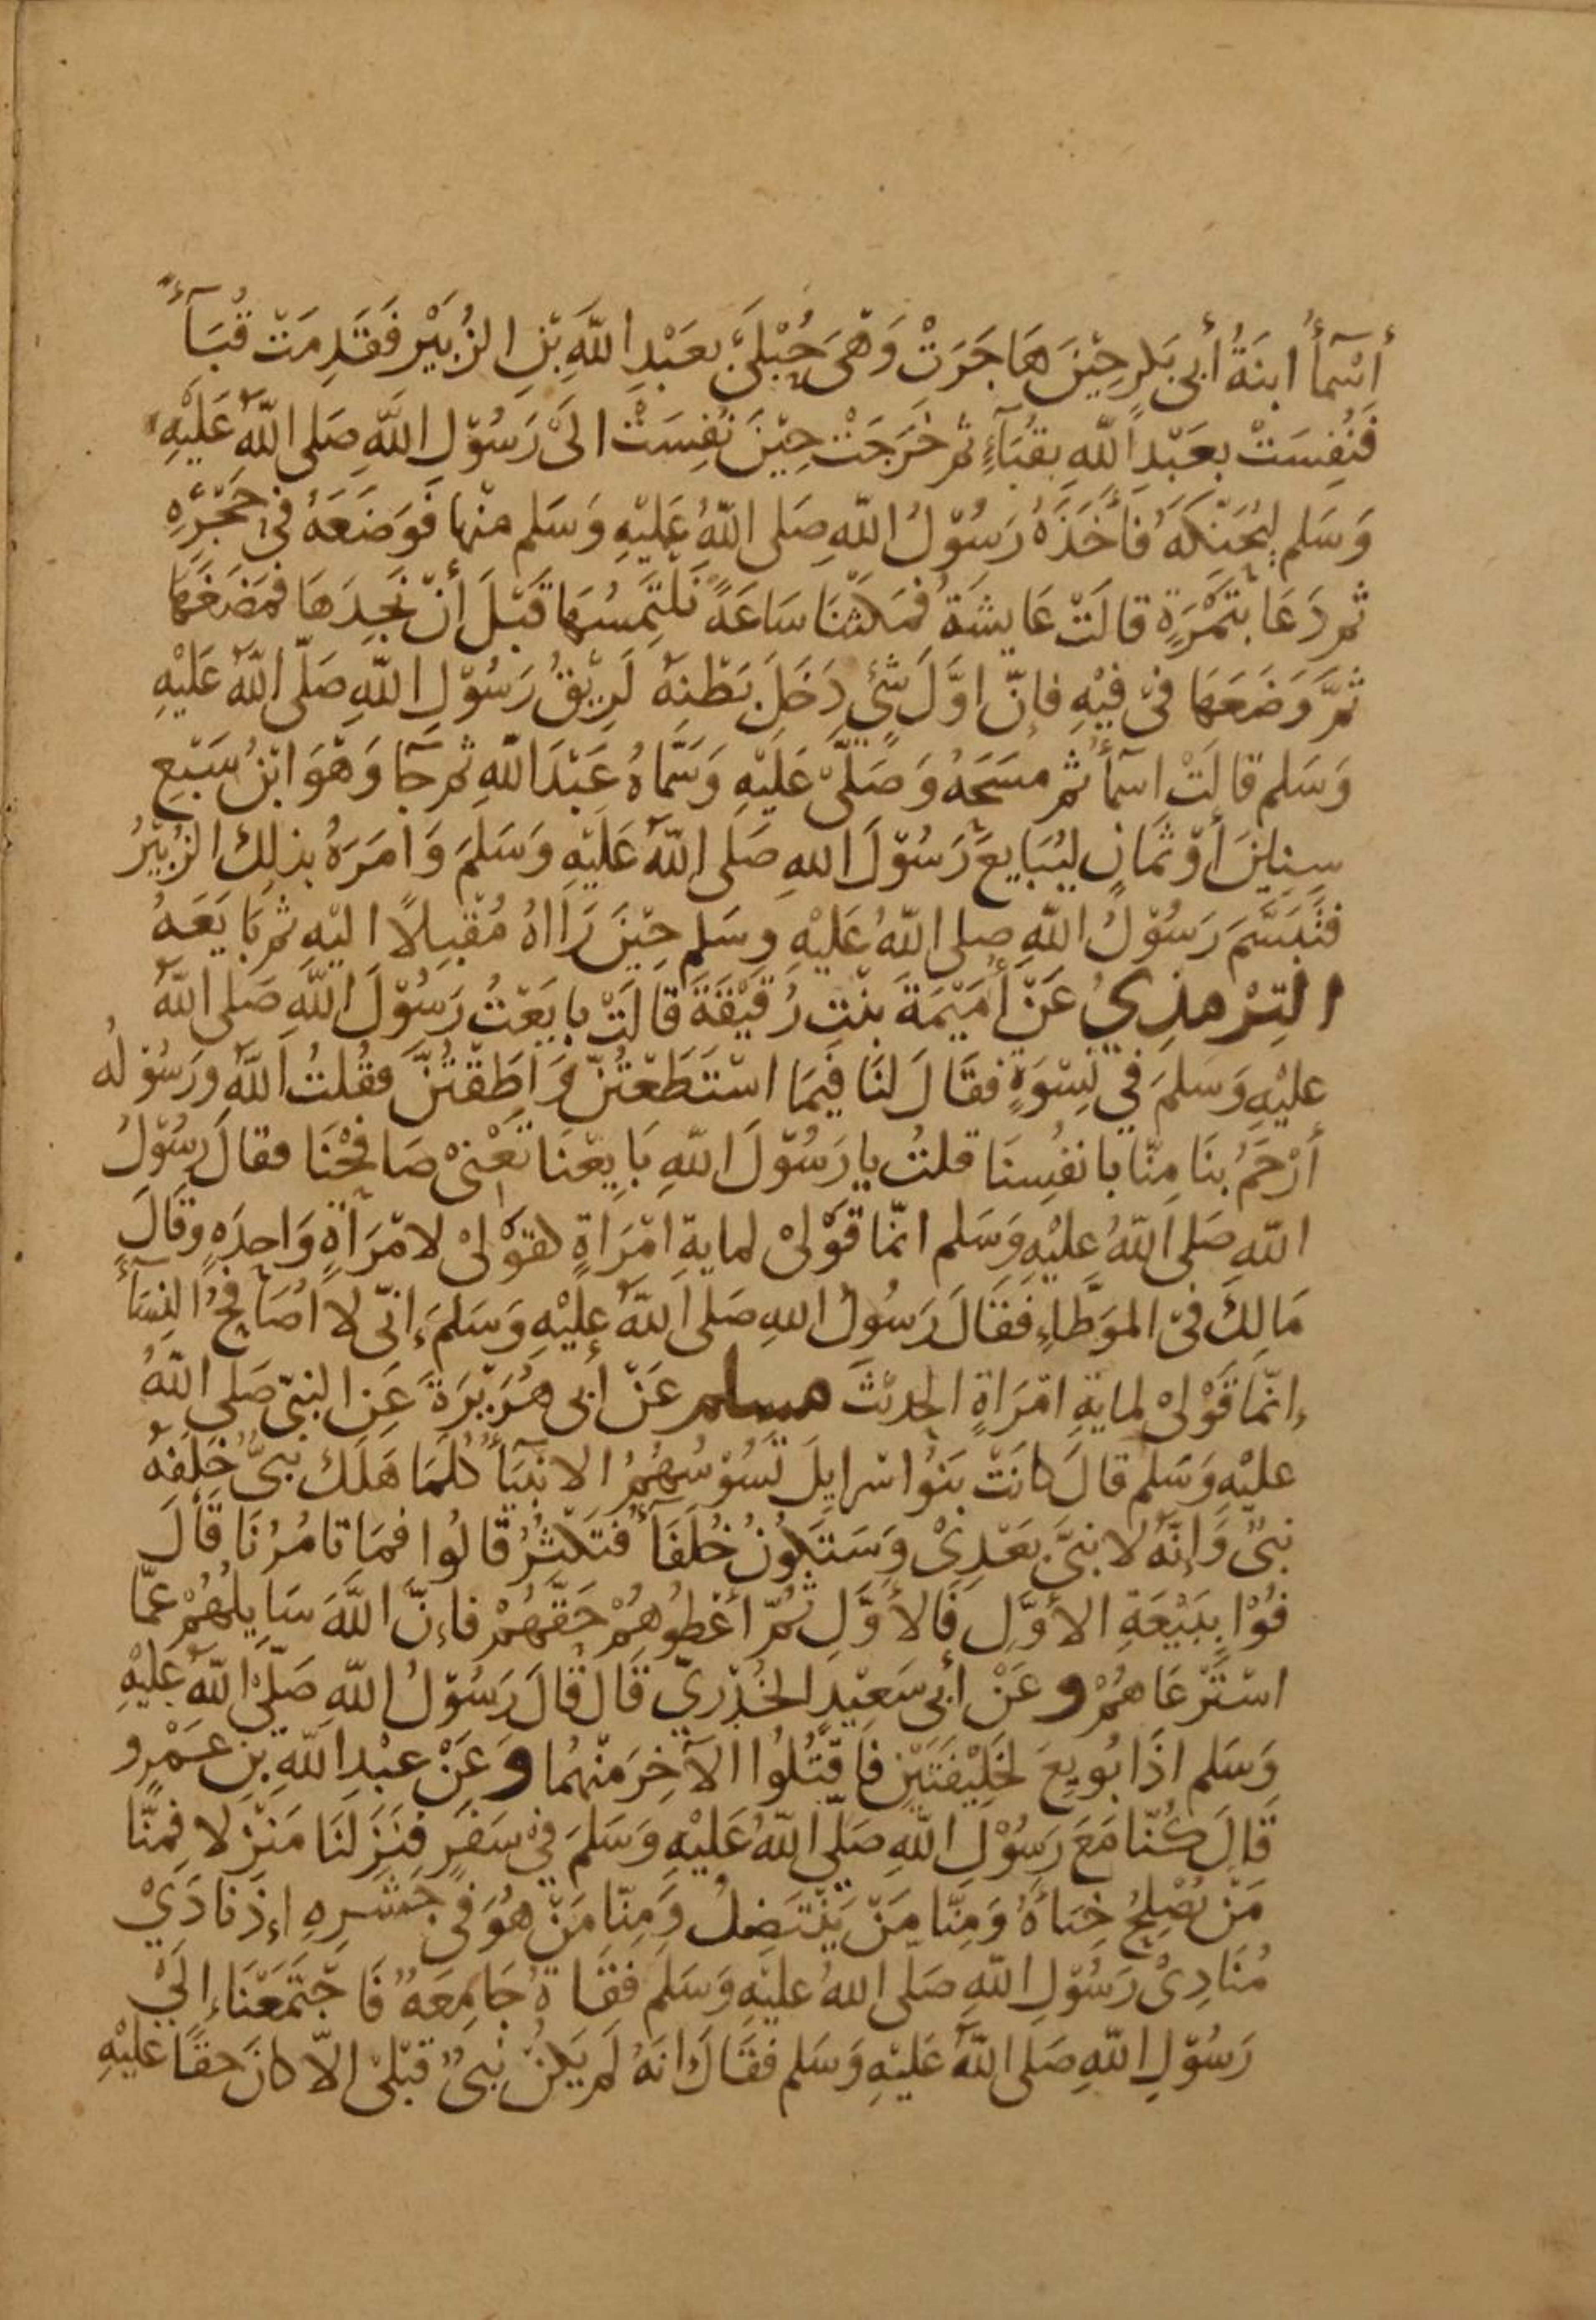 أَسْمَآءُ ابنَةُ أَبِى بَكرٍ حِيْنَ هَاجَرَتْ وَهْىَ حُبْلَىَ بعَبْدِ اللهِ بْنِ الزُبَيْرِ فَقَدِمَتْ قُبَآءً
فَنُفِسَتْ بعَبْدِ اللهِ بقُبَآءٍ ثم خَرَجَتْ حِيْنَ نُفِسَتْ الَىْ رَسُوْلِ اللهِ صَلى اللهُ عَلَيْهِ
وَسَلم لِيُحَنِّكَهُ فَأَخَذَهُ رَسُوْلُ اللهِ صَلى اللهُ عَلَيْهِ وَسَلم منْها فَوَضَعَهُ فى حَجْرِهِ
ثم دَعَا بتَمْرَةٍ قالَتْ عَايشَةُ فمَكَثْنَا سَاعَةً نَلْتَمِسُهَا قَبْلَ أنْ نَجِدَهَا فمَضَغَهَا
ثمَّ وَضَعَهَا فىْ فِيْهِ فإنّ اوَّلَ شَىْءٍ دَخَلَ بَطْنهُ لَرِيْقُ رَسُوْلِ اللهِ صَلّى اللهُ عَلَيْهِ
وَسَلم قالَتْ اسمَآءُ ثم مسَحَهُ وَصَلَّىْ عَلَيْهِ وَسَمَّاهُ عَبْدَ اللهِ ثم جَآ وَهْوَ ابْنُ سَبْعِ
سِنِيْنَ أوْ ثمَانٍ ليُبَايعَ رَسُوْلَ اللهِ صَلَى اللهُ عَلَيْهِ وَسَلمَ وَامَرَهُ بذلِكَ الزُبَيْرُ
فتَبَسَّمَ رَسُوْلُ اللهِ صلى اللهُ عَلَيْهِ وسَلم حِيْنَ رَااهُ مُقْبِلًا اليْهِ ثم بَايَعَهُ
التِرْمذِيُ عَنْ أُمَيْمَةَ بنْتِ رُقَيْقَةَ قالَتْ بايَعْتُ رَسُوْلَ اللهِ صَلى اللهُ
عليْهِ وَسَلمَ فِي نِسْوَةٍ فقَالَ لنَا فِيمَا اسْتَطَعْتُنّ وَاطَقْتُنَّ فقُلتُ اللهُ ورَسُوْلُه
أَرْحَمُ بنَا مِنّا بانفُسِنَا قلتُ يا رَسُوْلَ اللهِ بَايِعْنَا تَعْنىْ صَافِحْنَا فقالَ رسُوْلُ
اللهِ صَلى اللهُ عليْهِ وَسَلم انّمَا قَوْلىْ لمايةِ امْرَاةٍ كقوْلىْ لامْرَأةٍ وَاحِدَهٍ وقَالَ
مَالِكُ فىْ الموَطّاءِ فقَالَ رَسُولُ اللهِ صَلى اللهُ عليْهِ وَسَلمَ إنّى لا اُصَافِحُ النِسَآءَ
إنّمَا قَوْلىْ لمايةِ امْرَاةٍ الحديْثَ مسلم عَنْ أبى هُرَيْرَةَ عَنِ النبىّ صَلى اللهُ
عليْهِ وَسَلم قالَ كانَتْ بَنُوا سْرايلَ تَسُوْسُهُمُ الانبيَآءُ كلمَا هَلَكَ نبىٌّ خَلَفَهُ
نبىٌ وَإنّهُ لا نبىَّ بَعْدِىْ وَسَتَكونُ خُلَفَآءُ فتَكْثُرُ قالُوا فمَا تامُرُنَا قالَ
فُوْا ببَيْعَةِ الأوَّلِ فَالأوَّلِ ثُمّ أعْطُوهُمْ حَقَّهُمْ فإنَّ اللهَ سَايلُهُمْ عمّا
اسْتَرْعَاهُمْ وعَنْ أبى سَعِيْدٍ الخُدْرِيّ قَالَ قالَ رَسُوْلُ اللهِ صَلَّىْ اللهُ عليْهِ
وَسَلم اذَا بُويعَ لخَلِيْفَتَيْنِ فاقْتُلُوا الآخِرَ منْهُما وعَنْ عبْدِ اللهِ بنِ عَمْرٍو
قالَ كُنّا مَعَ رَسُوْلِ اللهِ صَلّى اللهُ عَلَيْهِ وَسَلمَ فِىْ سَفَرٍ فنَزَلنَا مَنْزِلا فمِنّا
مَنْ يُصْلِحُ خِبَاءَهُ وَمِنّا مَنْ يَنْتَضِلُ وَمِنّا مَنْ هُوَ فى جَشَرِهِ اءِذْ نادَيْ
مُنَادِىْ رَسُوْلِ اللهِ صَلى اللهُ عليْهِ وَسَلم جَامِعَةٌ فَاجْتَمَعْنَا إلَىْ
رَسُوْلِ اللهِ صَلى اللهُ عَلَيْهِ وَسَلم فقَالَ انهُ لَم يَكنْ نبىٌ قبْلىْ الاّ كانَ حقًا عليْهِ